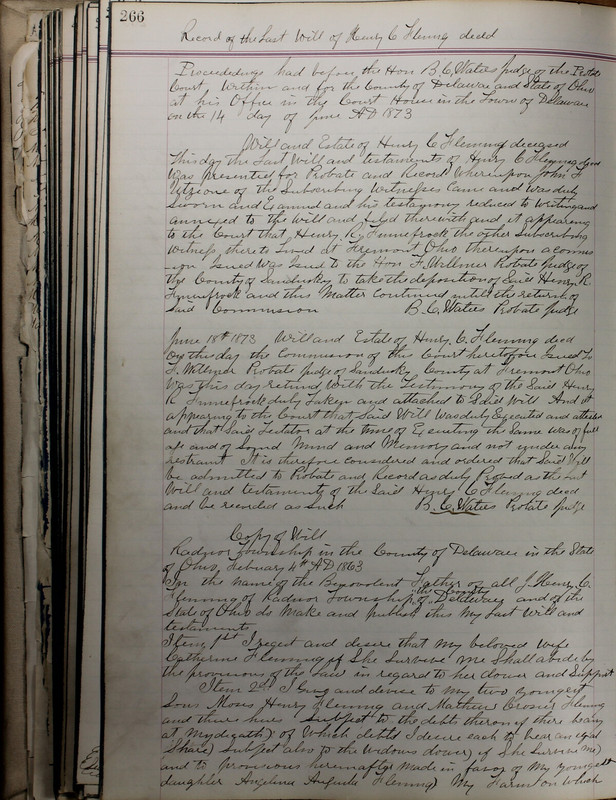 266
Record of the Last Will of Henry C Fleming decd
Proceedings had before the Hon B. C. Waters Judge of the Probate
Court, Within and for the County of Delaware and State of Ohio
at his Office in the Court House in the Town of Delaware
on the 14 day of June AD 1873
Will and Estate of Henry C Fleming deceased
This day the Last Will and testament of Henry C Fleming decd
Was presented for Probate and Record Whereupon John F
one of the Subscribing Witnesses Came and was duly
Sworn and Examined and his testimony reduced to Writing and
annexed to the Will and filed therewith and it appearing
to the Court that, Henry R. Finnefrock the other Subscribing
Witness thereto lived at Fremont Ohio thereupon a Commis
-ion Issued Was Issued to the Hon F. Willmer Probate Judge of
the County of Sandusky to take the deposition of Said Henry R.
Finnefrock and this Matter Continued until the return of
Said Commission B. C. Waters Probate Judge
June 18th 1873 Will and Estate of Henry C. Fleming decd
On this day the Commission of this Court heretofore Issued To
F. Willmer Probate Judge of Sandusky County at Fremont Ohio
Was this day returned With the Testimony of the Said Henry
R Finnefrock duly taken and attached to Said Will And it
appearing to the Court that Said Will was duly Executed and attested
and that Said Testator at the time of Executing the Same was of full
age and of Sound Mind and Memory and not under any
restraint It is therefore Considered and ordered that Said Will
be admitted to Probate and Record as duly Proved as the Last
Will and testament of the Said Henry C Fleming decd
and be recorded as Such B. C. Waters Probate Judge
Copy of Will
Radnor Township in the County of Delaware in the State
of Ohio, February 4th AD 1863
In the name of the Benevolent Father of all I Henry C.
Fleming of Radnor Township, in the County of Delaware and of the
State of Ohio do Make and publish this My Last Will and
testament
Item 1st I regest and desire that My beloved Wife
Catherine Fleming if She Survive Me Shall abide by
the provisions of the Law in regard to her dower and Support
Item 2nd I Give and devise to My two youngest
Sons Moses Henry Fleming and Mathew Crosier Fleming
and their heirs Subject to the debts thereon if there be any
at My death) of Which debts I desire each to bear an equal
Share) Subject also to the Widows dower) if She Survive Me)
and to provisions hereinafter Made in favor of My youngest
daughter Angelina Augusta Fleming) My Farm on Which